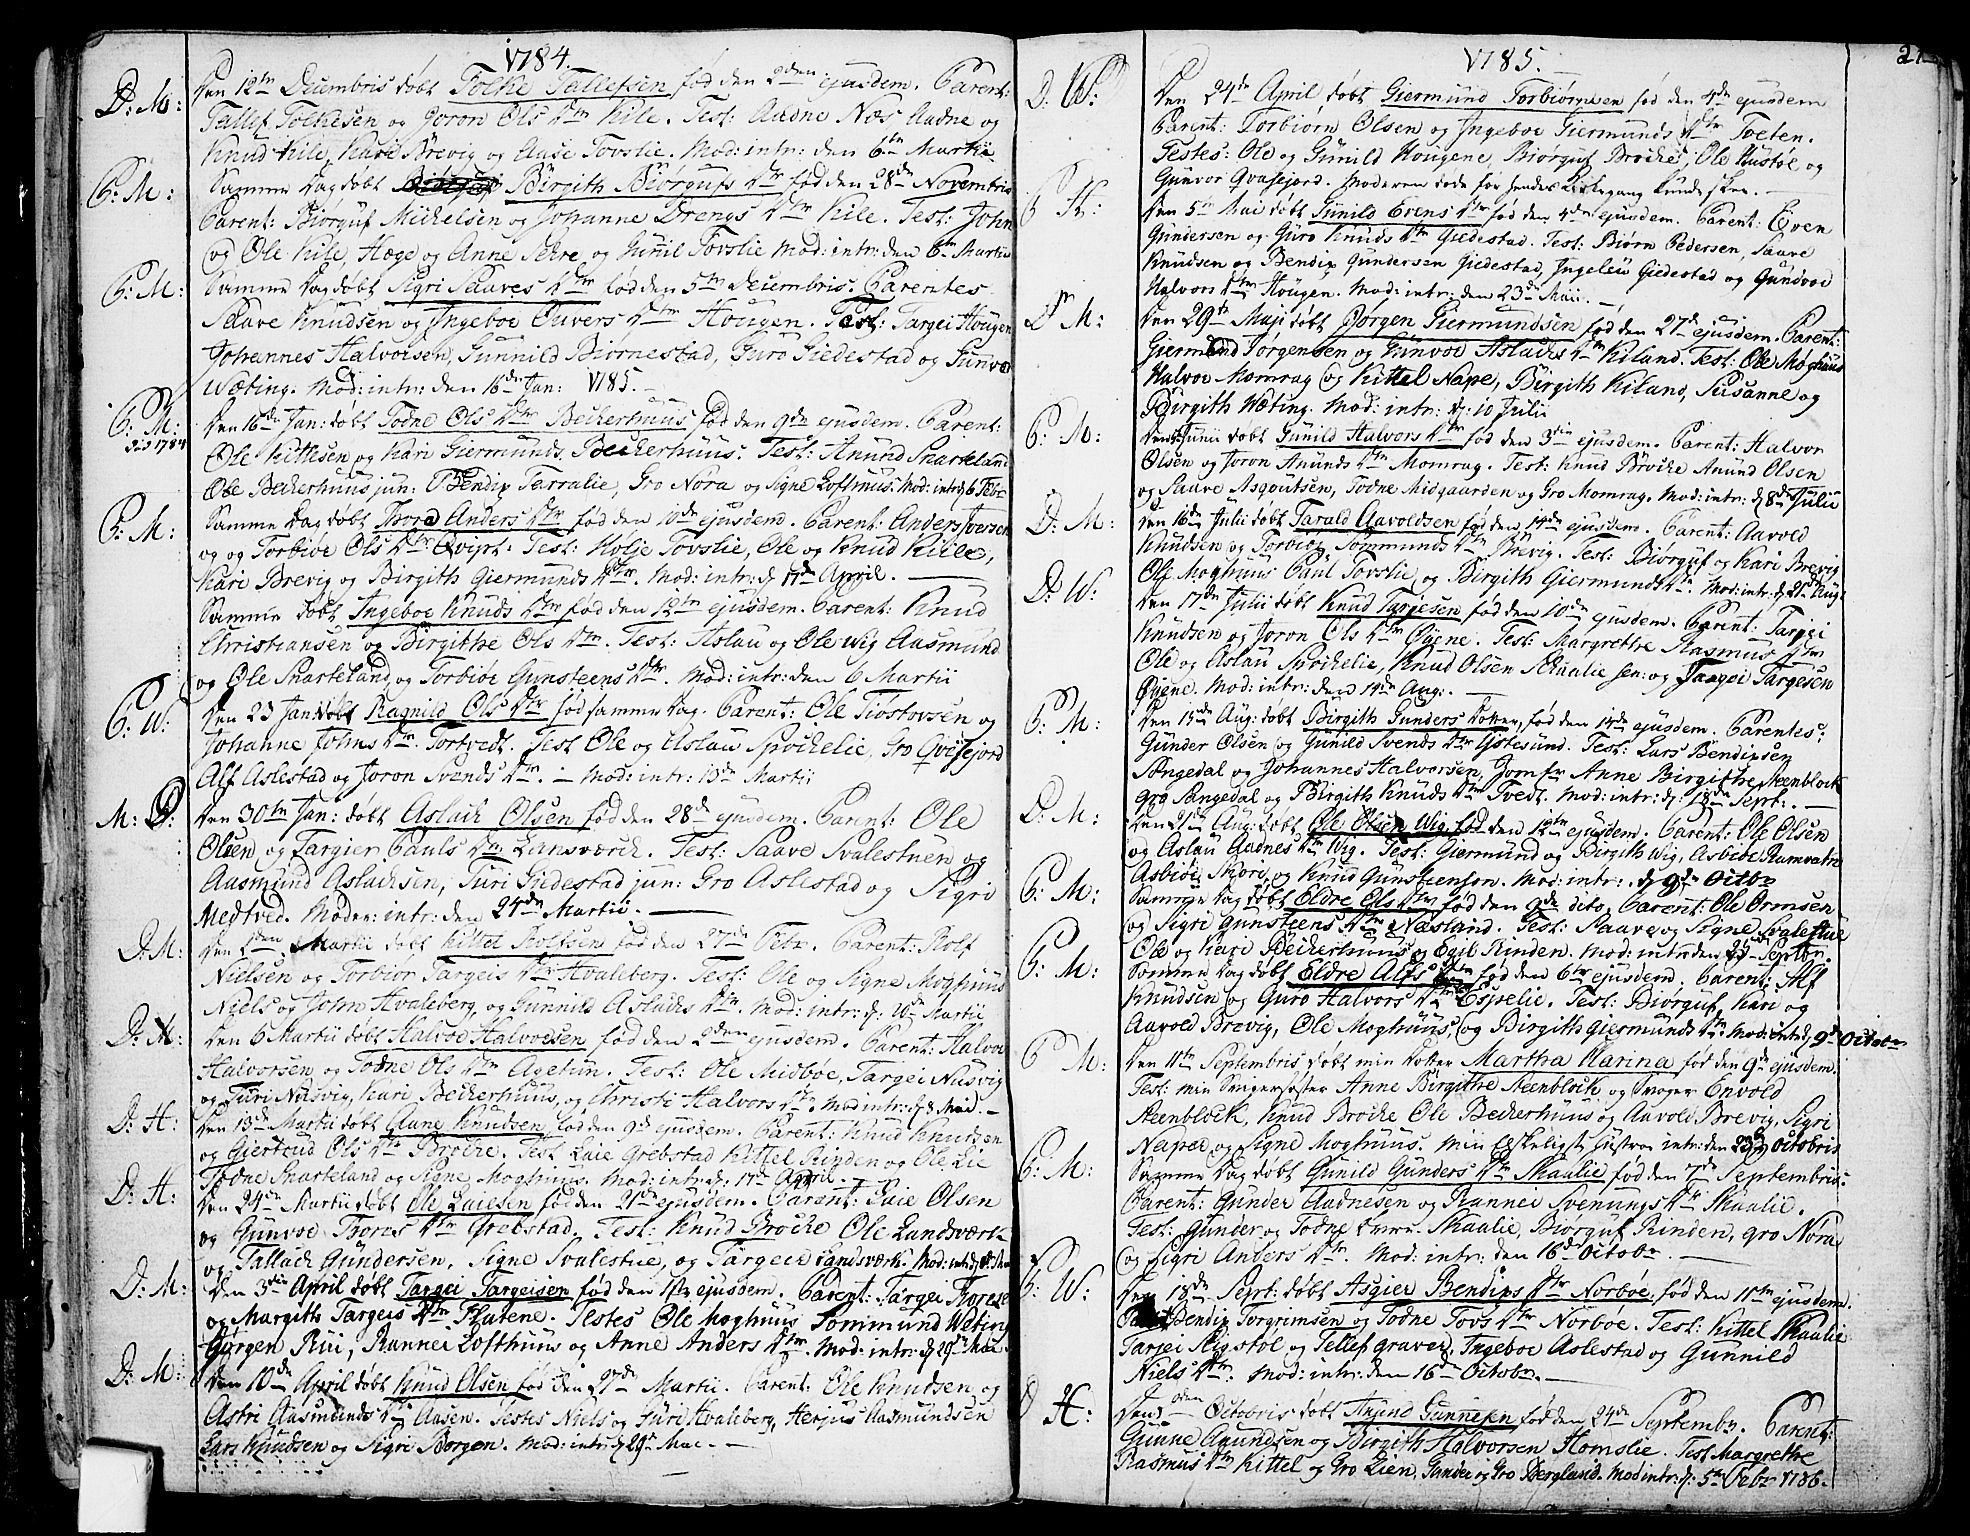 1784.
D: M: Den 12te Decembris døbt Tolke Tallefsen fød den 2den ejusdem. Parent:
Tallef Tolkesen og Joron Ols Dtr Kile. Test: Aadne Næs Aadne og
Knud Kile, Kari Brevig og Aase Tovslie. Mod: intr: den 6te Martii
P: M: Samme Dag døbt Birgith Biørgufs Dtr fød den 28de Novembris
Parent: Biørguf Mickelsen og Johanne Drengs Dtr Kile. Test: John
og Ole Kile, Hæge og Anne og Gunil Tovslie Mod: intr: den 6te Martii
P: M: Samme Dag døbt Sigri Saaves Dtr fød den 5te Decembris. Parentes
Saave Knudsen og Ingeboe Ouvers Dtr Hougen. Test: Targei Hougen
Johannes Halvorsen, Gunnild Biørnestad, Guro Giedestad og Gunvor
Wæting. Mod: intr: den 16de Jan: 1785.
P: M: Den 16de Jan: døbt Todne Ols Dtr Beckerhuus fød den 9de ejusdem. Parent:
1784
Ole Kittesen og Kari Giermunds Beckerhuus. Test: Anund Snarteland
Ole Beckerhuus jun: Bendix Terralie, Gro Nora og Signe Lofthuus. Mod: intr: d. 6 Febr
P: M: Samme Dag døbt Thora Anders Dtr fød den 10de ejusdem. Parent: Anders Iversen
og og Torbiør Ols Dtr Test: Holje Tovslie, Ole og Knud Kile,
Kari Brevig og Birgith Giermunds Dtr. Mod: intr: d. 17de April.
Samme døbt Ingeboe Knuds Dtr fød den 12te ejusdem. Parent: Knud
Christiansen og Birgithe Ols Dtr. Test: Aslau og Ole Wig Aasmund
og Ole Snarteland og Torbiør Gunsteens Dtr. Mod: intr: den 6 Martii
P: W: Den 23 Jan: døbt Ragnild Ols Dtr fød samme Dag. Parent: Ole Tiøstovsen og
Johanne Johns Dtr. Tortvedt. Test Ole og Aslau Spockelie, Gro Qvisejord
Alf Aslestad og Joron Svends Dtr. Mod: intr: 13de Martii
M: D: Den 30te Jan: døbt Aslack Olsen fød den 28de ejusdem. Parent: Ole
Olsen og Targier Pauls Dtr Lansværck. Test: Saave Svalestuen og
Aasmund Aslacksen, Turi Giedestad jun: Gro Aslestad og Sigri
Medtved. Moder: intr: den 24de Martii.
D: M: Den 1den Martii døbt Kittel Rolfsen fød den 27de Febr. Parent: Rolf
Nielsen og Torbiør Targeis Dtr Hvaleberg. Test: Ole og Signe Moghuus
Niels og John Hvaleberg, og Gunnild Aslacks Dtr. Mod: intr: d. Martii
D: H: Den 6 Martii døbt Halvor Halvorsen fød den 2den ejusdem. Parent: Halvor
Halvorsen og Todne Ols Dtr Agetun. Test: Ole Midbøe, Targei Nusvig
og Turi Nusvig, Kari Beckerhuus, og Christi Halvors Dtr. Mod intr: d. 8 Mai.
D: H: Den 13de Martii døbt Aane Knudsen fød den 9de ejusdem. Parent: Knud Knudsen
og Giertrud Ols Dtr Brocke. Test Laie Grebstad Kittel Rinden og Ole Lie
Todne Snarteland og Signe Moghuus. Mod: intr: d. 17de April.
D: H: Den 24de Martii døbt Ole Laiesen fød den 21de ejusdem. Parent: Laie Olsen
og Gunvor Thores Dtr Grebstad. Test: Knud Brocke Ole Landsværck
og Tallack Gundersen, Signe Svalestue, og Targeir Landsværk. Mod: intr:
D: M: Den 3die April døbt Targei Targeisen fød den 1ste ejusdem. Parent: Targei
og Margith Targeis Dtr Flatene. Testes Ole Moghuus Tommund Weting
Gørgen Rui, Rannei Lofthuus og Anne Anders Dtr. Mod: intr: d. 29de Mai.
D: M: Den 10de April døbt Knud Olsen fød den 27de Martii. Parent: Ole Knudsen og
Astri Aasmunds Dtr Aasen. Testes Niels og Guri Hvaleberg, Herjus Aasmundsen
Lars Knudsen og Sigri Borgen. Mod: intr: d. 29de Mai.
1785.
21
D: W: Den 24de April døbt Giermund Torbiørnsen fød den 4de ejusdem
Parent: Torbiørn Olsen og Ingeboe Giermunds Dtr Tveten.
Testes: Ole og Gunild Hougene, Biørguf Brocke, Ole Kustøl og
Gunvor Qvasejord. Moderen døde før hendes Kirkegang kunde skee.
P H: Den 5te Mai døbt Gunild Evens Dtr fød den 4de ejusdem. Parent: Even
Gundersen og Guro Knuds Dtr Giedestad. Test: Biørn Pedersen, Saave
Knudsen og Bendix Gundersen Giedestad, Ingeleu Giedestad og Gundvor
Halvors Dtr Hougen. Mod: intr: den 23de Maii.
D M: Den 29de Maji døbt Jørgen Giermundsen fød den 27de ejusdem. Parent:
Giermund Jørgensen og Gunvor Aslacks Dtr Kiland. Test: Ole Moghuus
Halvor Momrag og Kittel Nape, Birgith Kiland, Susanne og
Birgith Wæting. Mod: intr: d: 10 Julii
P: M: Den Junii døbt Gunild Halvors Dtr fød den 3die ejusdem. Parent: Halvor
Olsen og Joron Anunds Dtr Momrag. Test: Knud Brocke Anund Olsen
og Saave Asgoutsen, Todne Midgaarden og Gro Momrag. Mod: intr: d. 8de Julii
D: M: Den 16de Julii døbt Tarald Aavoldsen fød den 14de ejusdem. Parent: Aavold
Knudsen og Torbiør Tommunds Dtr Brevig. Test: Biørguf og Kari Brevig
Ole Moghuus Paul Tovslie, og Birgith Giermunds Dtr. Mod: intr: d. 21de Aug:
D: W: Den 17de Julii døbt Knud Tarjesen fød den 10de ejusdem. Parent: Tarjei
Knudsen og Joron Ols Dtr Øyene. Test: Margrethe Rasmus Dtr
Ole og Aslau Spockelie, Knud Olsen Skaalie sen: og Targesen
Øyene. Mod: intr: den 14de Aug:
P: M: Den 15de Aug: døbt Birgith Gunders Dotter, fød den 14de ejusdem. Parentes:
Gunder Olsen og Gunild Svends Dtr Ystesund. Test: Lars Bendixsen
Sængedal og Johannes Halvorsen, Jomfr Anne Birgithe Steenblock
Gro Sængedal og Birgith Knuds Dtr Tvedt. Mod: intr: d: 18de Sept:.
D: M: Den 21de Aug: døbt Ole Olsen Wig fød den 12te ejusdem. Parent: Ole Olsen
og Aslau Aadnes Dtr Wig. Test: Giermund og Birgith Wig, Asbiør Ramvatn
Asbiør Skori, og Knud Gunsteensøn. Mod: intr: d. 9de Octbr
P: M: Samme Dag døbt Eldre Ols Dtr fød den 9de dito, Parent: Ole Ormsen
og Sigri Gunsteens Dtr Næsland. Test: Saave og Signe Svalestue
Ole og Kari Beckerhuus og Egil Rinden. Mod: intr: den Septbr.
P: M: Sømme Dag døbt Eldre Alfs Dtr fød den 6te ejusdem, Parent: Alf
Knudsen og Guro Halvors Dtr Espelie. Test: Biørguf, Kari og
Aavold Brevig, Ole Moghuus, og Birgith Giermunds Dtr. Mod: intr: d. 9de Octobr
P M: Den 11te Septembris døbt min Dotter Martha Carina fød den 9de ejusdem.
Test: min Svigersøster Anne Birgithe Steenblock og Svoger Envold
Steenblock, Knud Brocke Ole Beckerhuus og Aavold Brevig, Sigri
Naper og Signe Moghuus. Min Elskeligst Hustroe intr: den 23de Octobris
P: M: Samme Dag døbt Gunild Gunders Dtr Skaalie fød den 7de Septembris:
Parent: Gunder Aadnesen og Rannei Svenungs Dtr Skaalie.
Test: Gunder og Todne Skaalie, Biørguf Rinden, Gro Nora
og Sigri Anders Dtr. Mod: intr: den 16de Octobr
P: W: Den 18de Sept: døbt Asgier Bendixs Dtr Norbøe, fød den 11te ejusdem.
Bendix Torgrimsen og Todne Tovs Dtr Norbøe. Test: Kittel Skaalie
Tarjei Rigstøl og Tellef Graver, Ingeboe Aslestad og Gunnild
Niels Dtr. Mod: intr: den 16de Octobr.
D H: Den 2den Octobris døbt Anund Gunnesen fød den 24de Septembr. Parent:
Gunne Anundsen og Birgith Halvorsen Homslie. Test Margrethe
Rasmus Dtr Kittel og Gro Lien, Gunder og Gro Bergland. Mod intr: d: 5te Febr 1786.